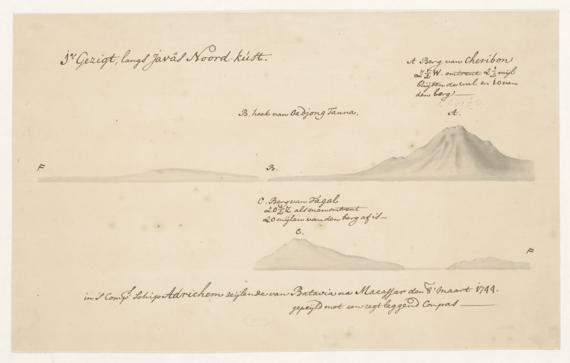 1e Gezigt, langs Javâs Noord-kúst.
A Berg van Cheribon
Z ½ W. omtrent 2½ mijl
buijten de wal en 10 van
den berg
A.
B. hoek van Oedjong Tanna.
F
B.
C. Berg van Tagal
als men omtrent
20 mijlen van den berg af is
C.
F
in 's Comps. Schip Adrichem zeijlende van Batavia na Macasser den 8e maart 1744.
gepeijld met een regt leggend Compas